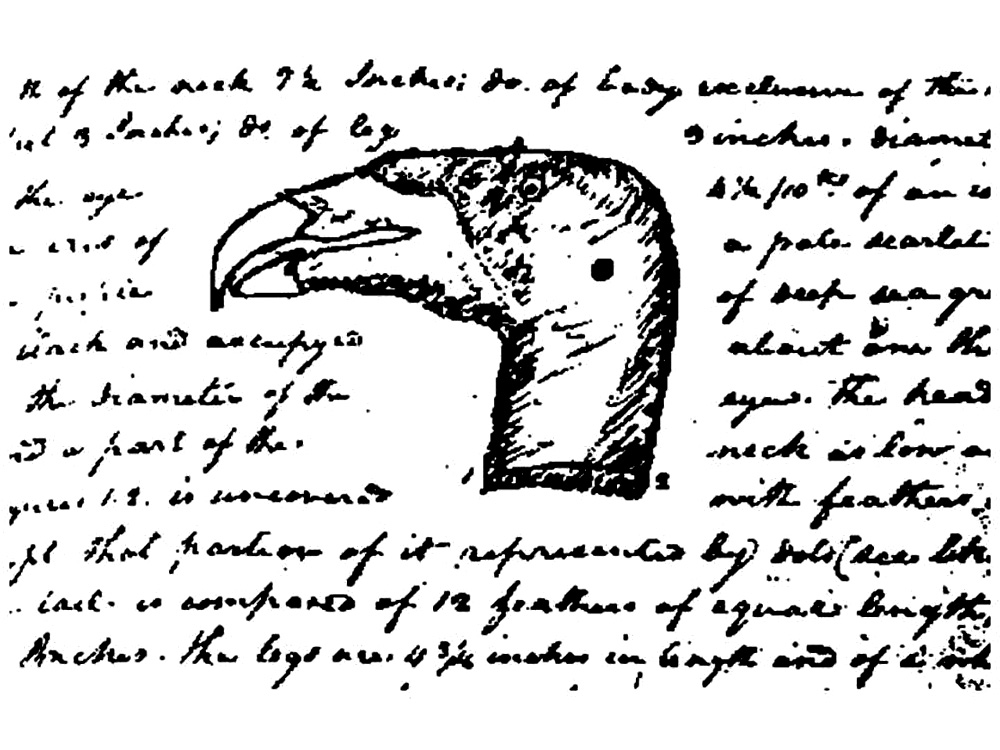 th of the neck 9½ Inches; do. of body exclusive of this
3 Inches; do. of leg 9 inches. diamet
the eye 4½/10ths of an in
iris of a pale scarlet
of deep sea gr
and occupyed about one th
the diameter of the eye. The head
and a part of the neck as low as
figures 1.2. is uncovered with feathers,
that portion of it represented by dots (see like
tail is composed of 12 feathers of equal length
Inches. the legs are 4¾ inches in length and of a wh
1 2